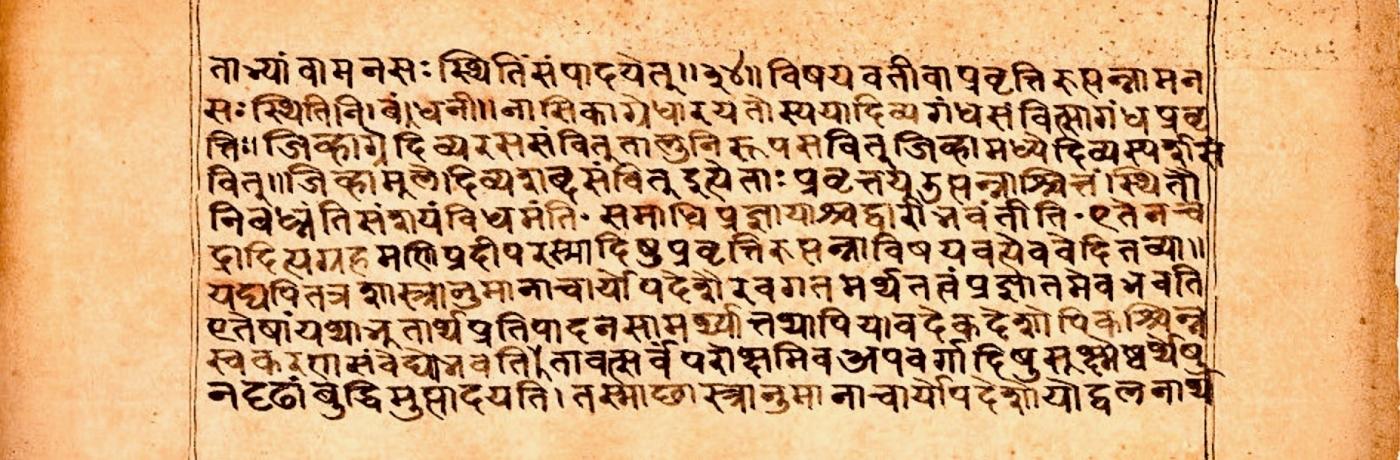 ताभ्यां वा मनसः स्थितिं संपादयेत् ॥३४॥ विषयवती वा प्रवृत्तिरुत्पन्ना मन
सः स्थितिनि।बं।धनी॥ नासिकाग्रे धारयतोस्य या दिव्यगंधसंवित्सा गंधप्रवृ
त्तिः॥ जिव्हाग्रे दिव्यरससंवित् तालुनि रूपसंवित् जिव्हामध्ये दिव्यस्पर्शसं
वित्॥ जिव्हामुले दिव्यशब्दसंवित् इत्येताः प्रवृत्तय उत्पन्नाश्चित्तं स्थितौ
निबध्नंति संशयं विधमंति॰ समाधिप्रज्ञायाश्च द्वारीभवंतीति॰ एतेन चं
द्रादित्यग्रहमणिप्रदीपरस्मादिषु प्रवृत्तिरुत्पन्ना विषयवत्येव वेदितव्या॥
यद्यपि तत्र शास्त्रानुमानाचार्योपदेशैरवगतमर्थतत्वं प्रज्ञातमेव भवति
एतेषां यथाभुतार्थप्रतिपादनसामर्थ्यात् तथापि यावदेकदेशोपि कश्चिन्न
स्वकरणसंवेद्यो भवति। तावत्सर्वं परोक्षमिव अपवर्गादिषु सुक्ष्मेष्वर्थेषु
न दृढां बुद्धिमुत्पादयति। तस्माछास्त्रानुमानाचार्योपदेशोपोद्बलनार्थ